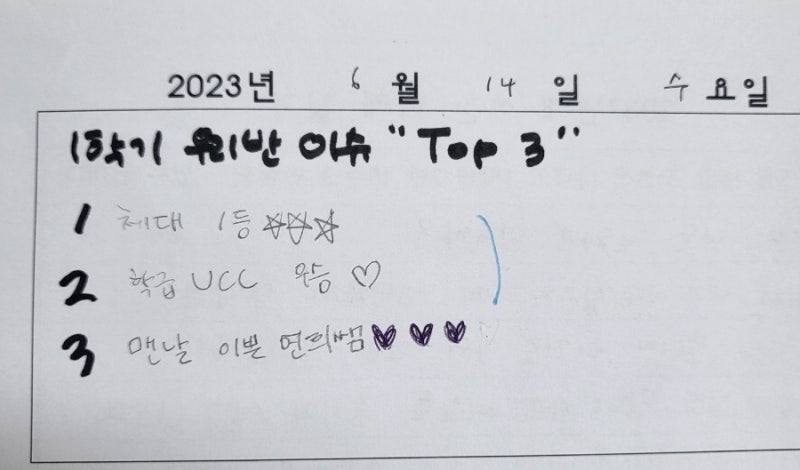 2023년 6월 14일 수요일
1학기 우리반 이슈 "Top 3"
1 체대 1등 ☆☆☆
2 학급 UCC 우승 ♡
3 맨날 이쁜 연희쌤 ♥ ♥ ♥ ♡